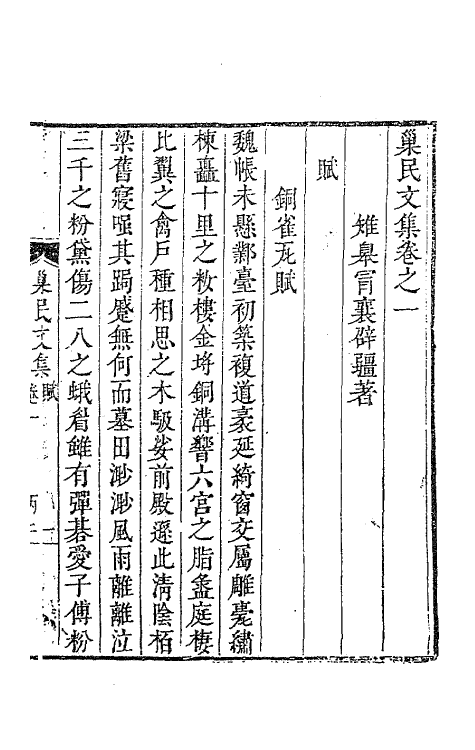 巢民文集卷之一
雉皋冒襄辟疆著
賦
銅雀瓦賦
魏帳未懸鄴臺初築複道袤延綺窗交屬雕甍繡
棟矗十里之妝樓金埒銅溝響六宮之脂盝庭棲
比翼之禽戶種相思之木馺娑前殿遜此清陰栢
梁舊寢嗤其局蹙無何而墓田渺渺風雨離離泣
三千之粉黛傷二八之蛾眉雖有彈碁愛子傅粉
巢民文集 賦 卷一